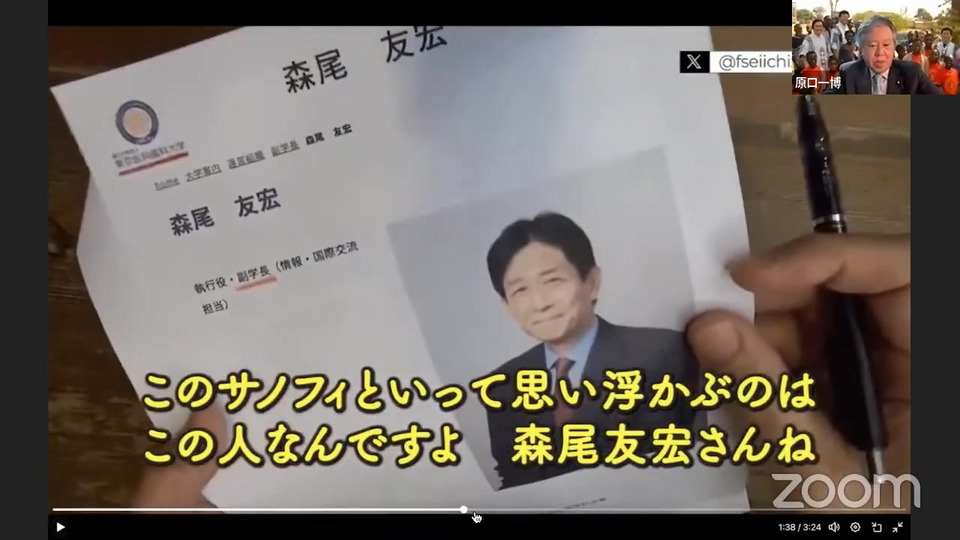 森尾 友宏
@fseiichi
原口一博
東京医科歯科大学
home 大学案内 運営組織 副学長 森尾 友宏
森尾 友宏
執行役・副学長（情報・国際交流
担当）
このサノフィといって思い浮かぶのは
この人なんですよ 森尾友宏さんね
zoom
1:38 / 3:24